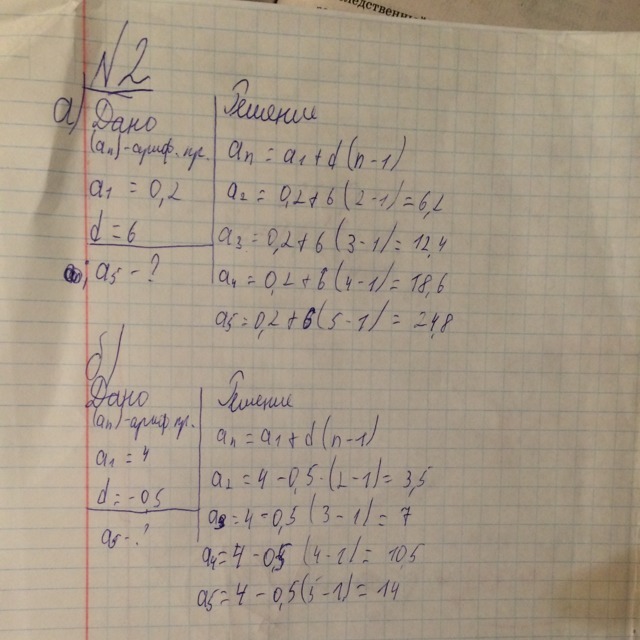 едственный
N2
а)
Дано
(an)-ариф. пр.
a1 = 0,2
d = 6
a5 - ?
Решение
an = a1 + d (n-1)
a2 = 0,2+6 (2-1) = 6,2
a3 = 0,2+6 (3-1) = 12,4
a4 = 0,2+6 (4-1) = 18,6
a5 = 0,2+6 (5-1) = 24,8
б)
Дано
(an)-ариф пр.
a1 = 4
d = -0,5
a5 - ?
Решение
an = a1 + d (n-1)
a2 = 4 - 0,5 · (2-1) = 3,5
a3 = 4 - 0,5 (3-1) = 7
a4 = 4 - 0,5 (4-1) = 10,5
a5 = 4 - 0,5 (5-1) = 14